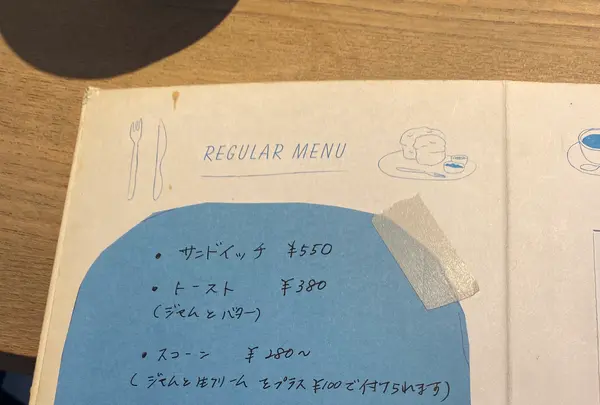 REGULAR MENU
・サンドイッチ ¥550
・トースト ¥380
(ジャムとバター)
・スコーン ¥280〜
(ジャムと生クリームをプラス¥100で付けられます)